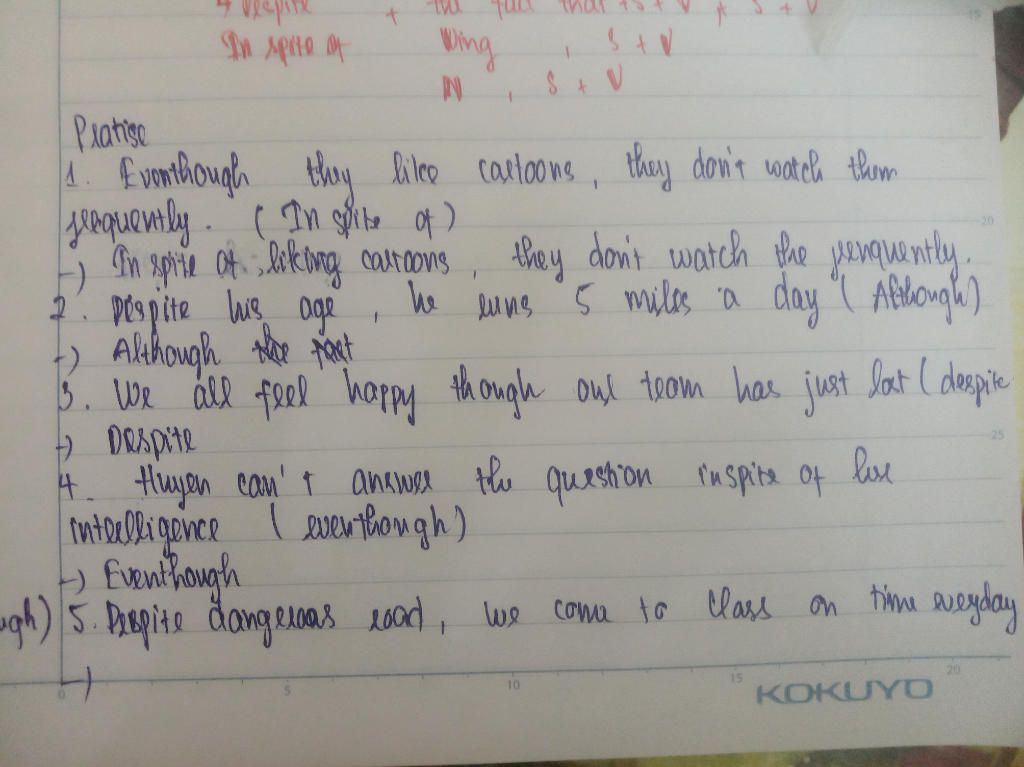 → Despite + the fact that + S + V , S + V
In spite of Ving , S + V
N , S + V
Pratise
1. Eventhough they like cartoons, they don't watch them
frequently. (In spite of)
-) In spite of liking cartoons, they don't watch the frenquently.
2. Despite his age, he runs 5 miles a day (Although)
-) Although the fact
3. We all feel happy though our team has just lost (despite
-) Despite
4. Huyen can't answer the question inspite of her
intelligence (eventhough)
-) Eventhough
ugh) 5. Despite dangeroas road, we come to class on time everyday
-)
0 5 10 15 20
KOKUYO
15
20
25